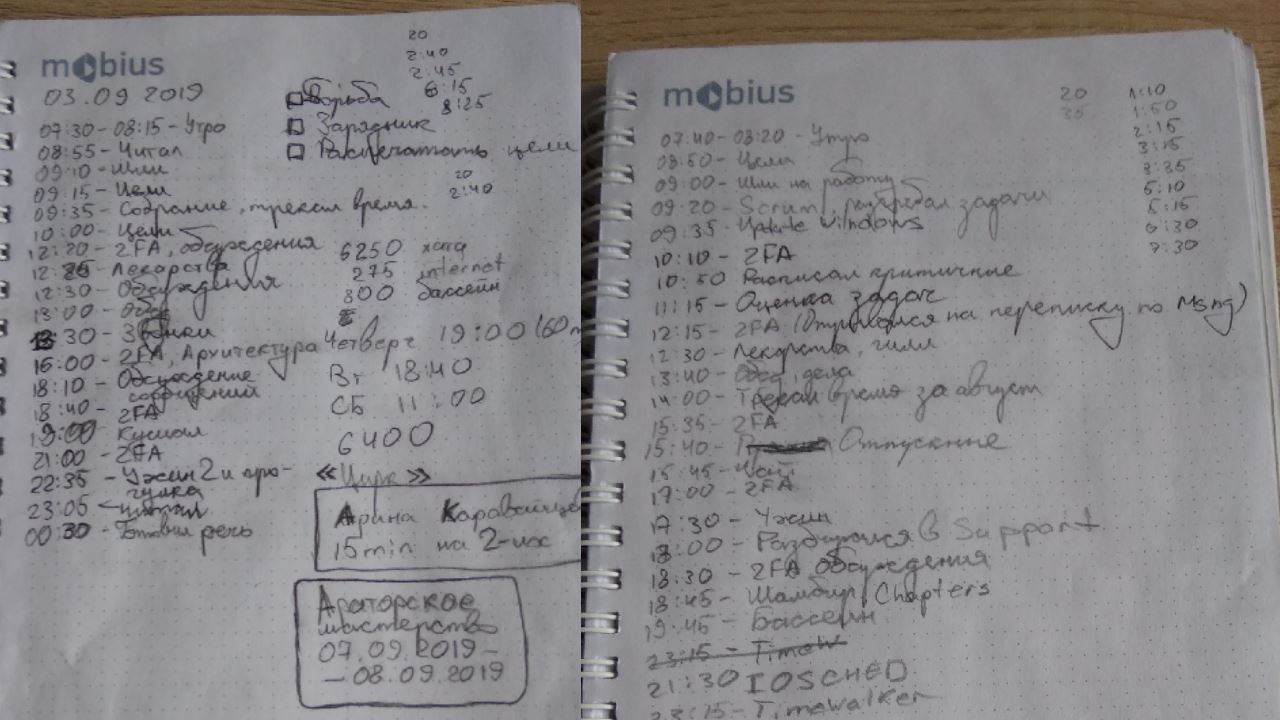 mobius
03.09 2019
07:30 - 08:15 - Утро
08:55 - Читал
09:10 - Шли
09:15 - Цели
09:35 - Собрание, трекал время.
10:00 - Цели
12:20 - 2FA, обсуждения
12:25 - Лекарства
12:30 - Обсуждения
13:00 - Обед
13:30 - Звонки
16:00 - 2FA, Архитектура
18:10 - Обсуждение
сообщений
18:40 - 2FA
19:00 - Кушал
21:00 - 2FA
22:35 - Ужин 2 и про-
гулка
23:05 - читал
00:30 - Готовил речь
20
2:40
2:45
6:15
8:25
Борьба
Зарядник
Распечатать цели
20
2:40
6250 хата
275 internet
800 бассейн
Четверг 19:00 (60
Вт 18:40
СБ 11:00
6400
«Цирк»
Арина
15 min на 2-их
Араторское
мастерство
07.09.2019 -
- 08.09.2019
mobius
20
35
1:10
1:50
2:15
3:15
3:35
5:10
5:15
6:30
7:30
07:40 - 08:20 - Утро
08:50 - Цели
09:00 - Шли на работу
09:20 - Scrum, разгребал задачи
09:35 - Update Windows
10:10 - 2FA
10:50 Расписал критичные
11:15 - Оценка задач
12:15 - 2FA (Отрывался на переписку по Msng)
12:30 - Лекарства, чилл
13:40 - Обед, дела
14:00 - Трекал время за август
15:35 - 2FA
15:40 - Отпускные
15:45 - Чай
17:00 - 2FA
17:30 - Ужин
18:00 - Разбирался в Support
18:30 - 2FA обсуждения
18:45 - Шамбир, Chapters
19:45 - Бассейн
23:15 - TimeW
21:30 IOSCHED
23:15 - Timewalker